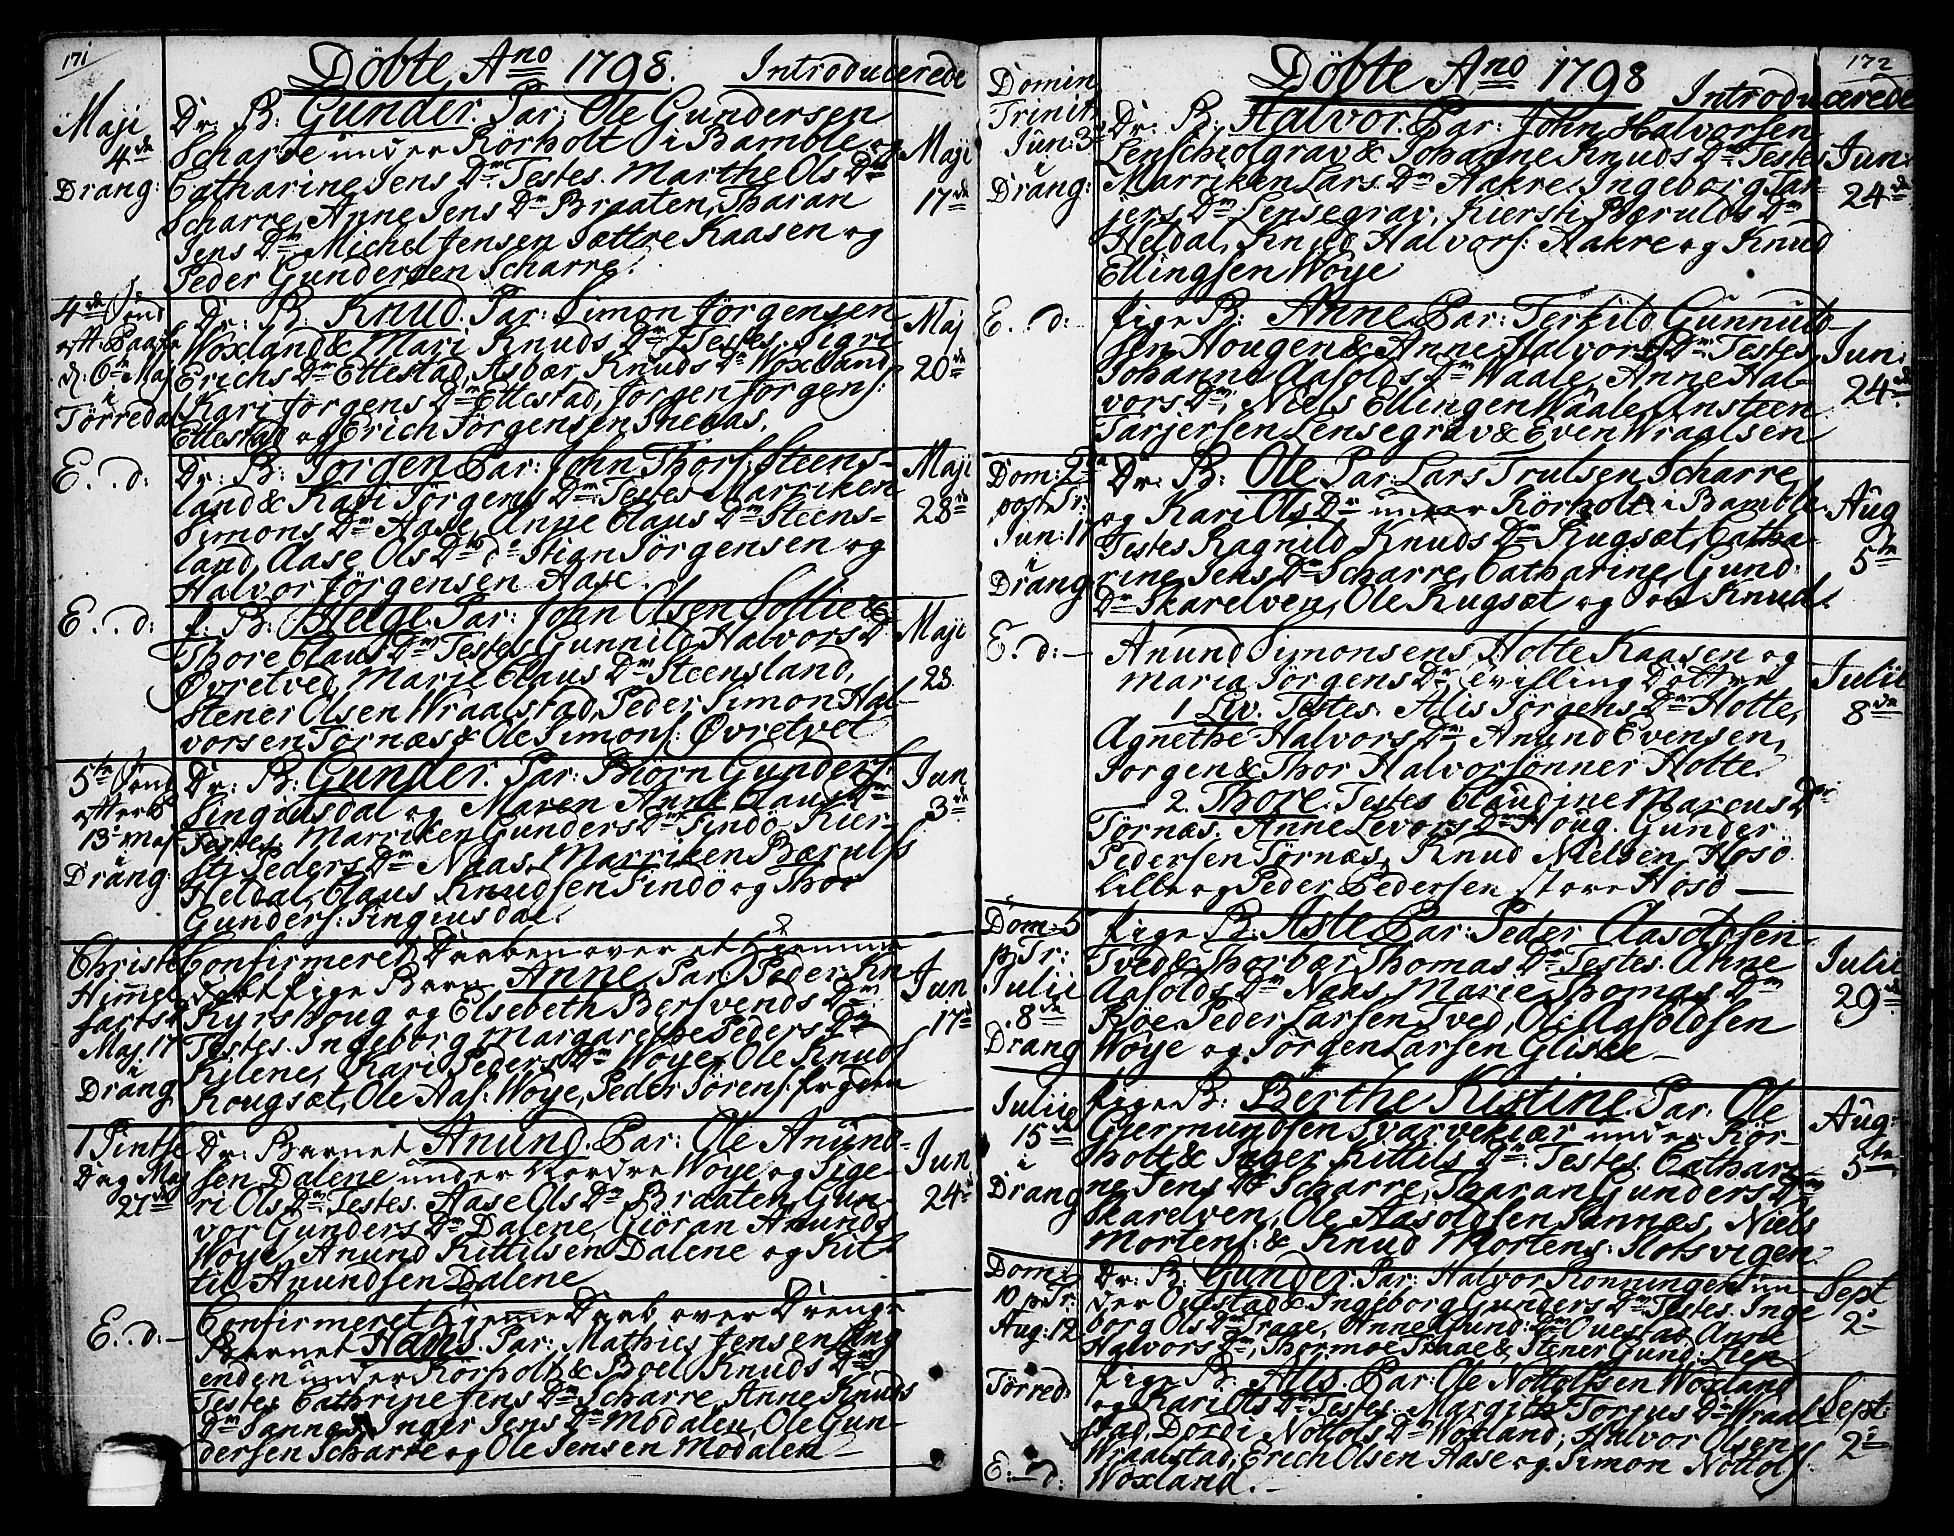 171
Döbte Ano 1798. Introducerede
Maji 4de Drang:
Dr: B: Gunder. Par: Ole Gundersen
Scharre under Rörholt i Bamble og
Catharine Jens Dr Testes. Marthe Ols Dr
Scharre, Anne Jens Dr Braaten, Tharan
Jens Dr Michel Jensen Sættre Kaasen og
Peder Gundersen Scharre.
Maji 17de
4de Sønd eft: Paaske d: 6te Maj i Törredal
Dr: B: Knud. Par: Simon Jörgensen
Woxland & Mari Knuds Dr Testes. Sigri
Erichs Dr Ettestad, Asbær Knuds Dr Woxland
Kari Jörgens Dr Ettestad, Jörgen Jörgens:
Ettestad og Erich Jörgensen Snebas.
Maj 20de
E..d:
Dr: B: Jörgen Par: John Thors: Steens-
land & Kari Jörgens Dr Testes Marriken
Simons Dr Aase, Anne Claus Dr Steens-
land, Aase Ols Dr do Stian Jörgensen og
Halvor Jörgensen Aase.
Maji 28de
E..d:
P: B: Helge. Par: John Olsen Sollie &
Thore Claus Dr Testes Gunnild Halvors Dr
Øvretved, Marie Claus Dr Steensland,
Stener Olsen Wraalstad, Peder Simon Hal-
vorsen Törnæs & Ole Simons: Øvretvet
Maji 28.
5te Sønd efter P 13de Maj i Drang:
Dr: B: Gunder. Par: Biörn Gunders:
Singiusdal og Maren Anne Claus Dr
Testes. Marriken Gunders Dr Findö Kier-
sti Peders Dr Naas, Marriken Bærulfs
Heldal, Claus Knudsen Findö og Thor
Gunders: Singiusdal.
Jun 3de
Christi Himmelfarts d Maj. 17 i Drang
Confirmeret Daaben over et Hiemme
döbt Pige Barn Anne. Par: Peder Kn
Kyrshoug og Elsebeth Bersvends Dr
Testes. Ingeborg Margarethe Peders Dr
Kilene, Kari Peders Dr Woye, Ole Knuds
Rougsæt, Ole Aas: Woye, Peder Sörens:
Jun 17de
1 Pintse Dag Maj 27de
Dr: Barnet Anund. Par: Ole Anund-
sen Dalene under Nordre Woye og Sige-
ri Ols Dr Testes. Aase Ols Dr Braaten, Gun-
vor Gunders Dr Dalene, Giöran Anunds
Woye, Anund Kittilsen Dalene og Kit-
til Anundsen Dalene
Jun 24de
E..d:-
Confirmeret Hjeme Daab over Drenge
Barnet Hans. Par: Mathies Jensen Eng
enden under Rörholt & Boel Knuds Dr
Testes Cathrine Jens Dr Scharre, Anne Knuds
Dr Sannes, Inger Jens Dr Modalen, Ole Gun-
dersen Scharre og Ole Jensen Modalen -
172
Döbte Ano 1798 Introducerede
Domin Trinit Jun: 3de i Drang:
Dr: B: Halvor. Par: John Halvorsen
Lenschiolgrav & Johanne Knuds Dr Testes
Marriken Lars Dr Aakre. Ingeborg Tar-
jers Dr Lensegrav, Kiersti Bærulds Dr
Heldal, Knud Halvors: Aakre og Knud
Ellingsen Woye
Jun: 24de
E..d:-
Pige B: Anne. Par: Terkild Gunnuld-
sen Hougen & Anne Halvors Dr Testes
Johanne Aasolds Dr Waale, Anne Hal-
vors Dr, Niels Ellingen Waale, Ansteen
Tarjersen Lensegrav & Even Wraalsen
Jun: 24de
Dom: 2da post Tr: Jun: 17 i Drang
Dr: B: Ole Par: Lars Trulsen Scharre
og Kari Ols Dr under Rörholt i Bamble
Testes Ragnild Knuds Dr Rugsæt, Catha-
rine Jens Dr Scharre, Catharine Gund:
Dr Skarelven, Ole Rugsæt og Knud.
Aug 5te
E..d:-
Anund Simonsens Holte Kaasen og
Maria Jörgens Dr Tvilling Döttre
1 Liv. Testes. Alis Jörgens Dr Holte,
Agnethe Halvors Dr, Anund Evensen,
Jörgen & Thor Halvorsönner Holte.
2. Thore. Testes Claudine Marcus Dr
Törnæs. Anne Levors Dr Houg. Gunder
Pedersen Törnæs, Knud Nielsen Hosö
lille og Peder Pedersen store Hosö -
Julii 8de
Dom: 5 p: Tr: Julii 8de i Drang
Pige B: Aste. Par: Peder Aasoldsen
Tved & Thorbær Thomas Dr Testes. Anne
Aasolds Dr Naas, Marie Thomas Dr
Röe. Peder Larsen Tved, Ole Aasoldsen
Woye og Jörgen Larsen Gliske -
Julii 29de
Julii 15de i Drang
Pige B: Berthe Kistine. Par: Ole
Giermundsen Svarvekiær under Rör-
holt & Inger Kittils Dr. Testes. Cathari-
ne Jens Dr Scharre, Tharan Gunders Dr
Skarelven, Ole Aasoldsen Sannæs, Niels
Mortens: & Knud Mortens: Slotsvigen.
Aug: 5te
Dom: 10 p: Tr: Aug: 12
Dr: B: Gunder. Par: Halvor Ronningen un-
der Ouestad & Ingeborg Gunders Dr Testes. Inge
borg Ols Dr Traae, Anne Gund: Dr Ouestad Anne
Halvors Dr, Thormoe Traae & Stener Gund:
Sept 2-
Törred:
E:-d:
Pige B: Alis. Par: Ole Nottolfsen Woxland
og Kari Ols Dr Testes. Margith Torjus Dr Wraal
stad, Dordi Nottols Dr Woxland, Halvor Olsen
Wraalstad, Erich Olsen Aase og Simon Nottols:
Woxland. -
Sept: 2-